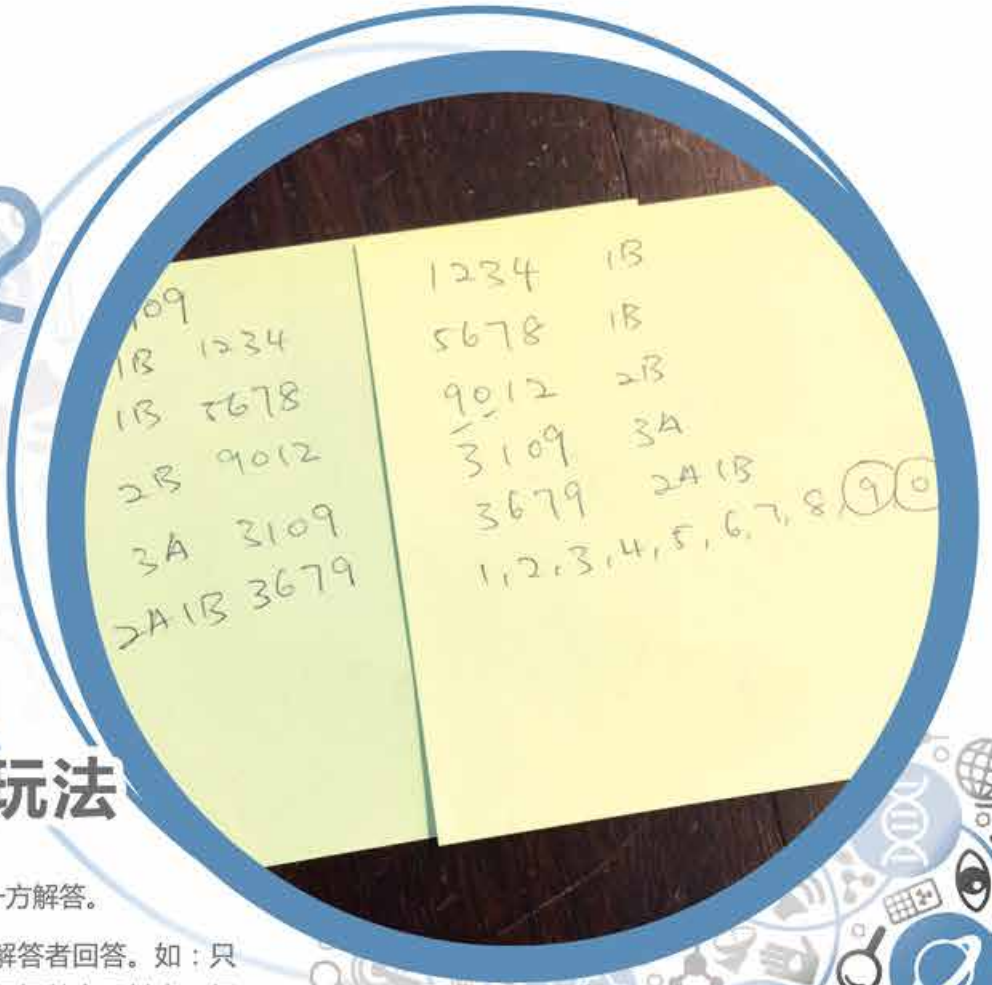 109
1B 1234
1B 5678
2B 9012
3A 3109
2A1B 3679
1234 1B
5678 1B
9012 2B
3109 3A
3679 2A1B
1,2,3,4,5,6,7,8,9 0
玩法
方解答。
解答者回答。如：只